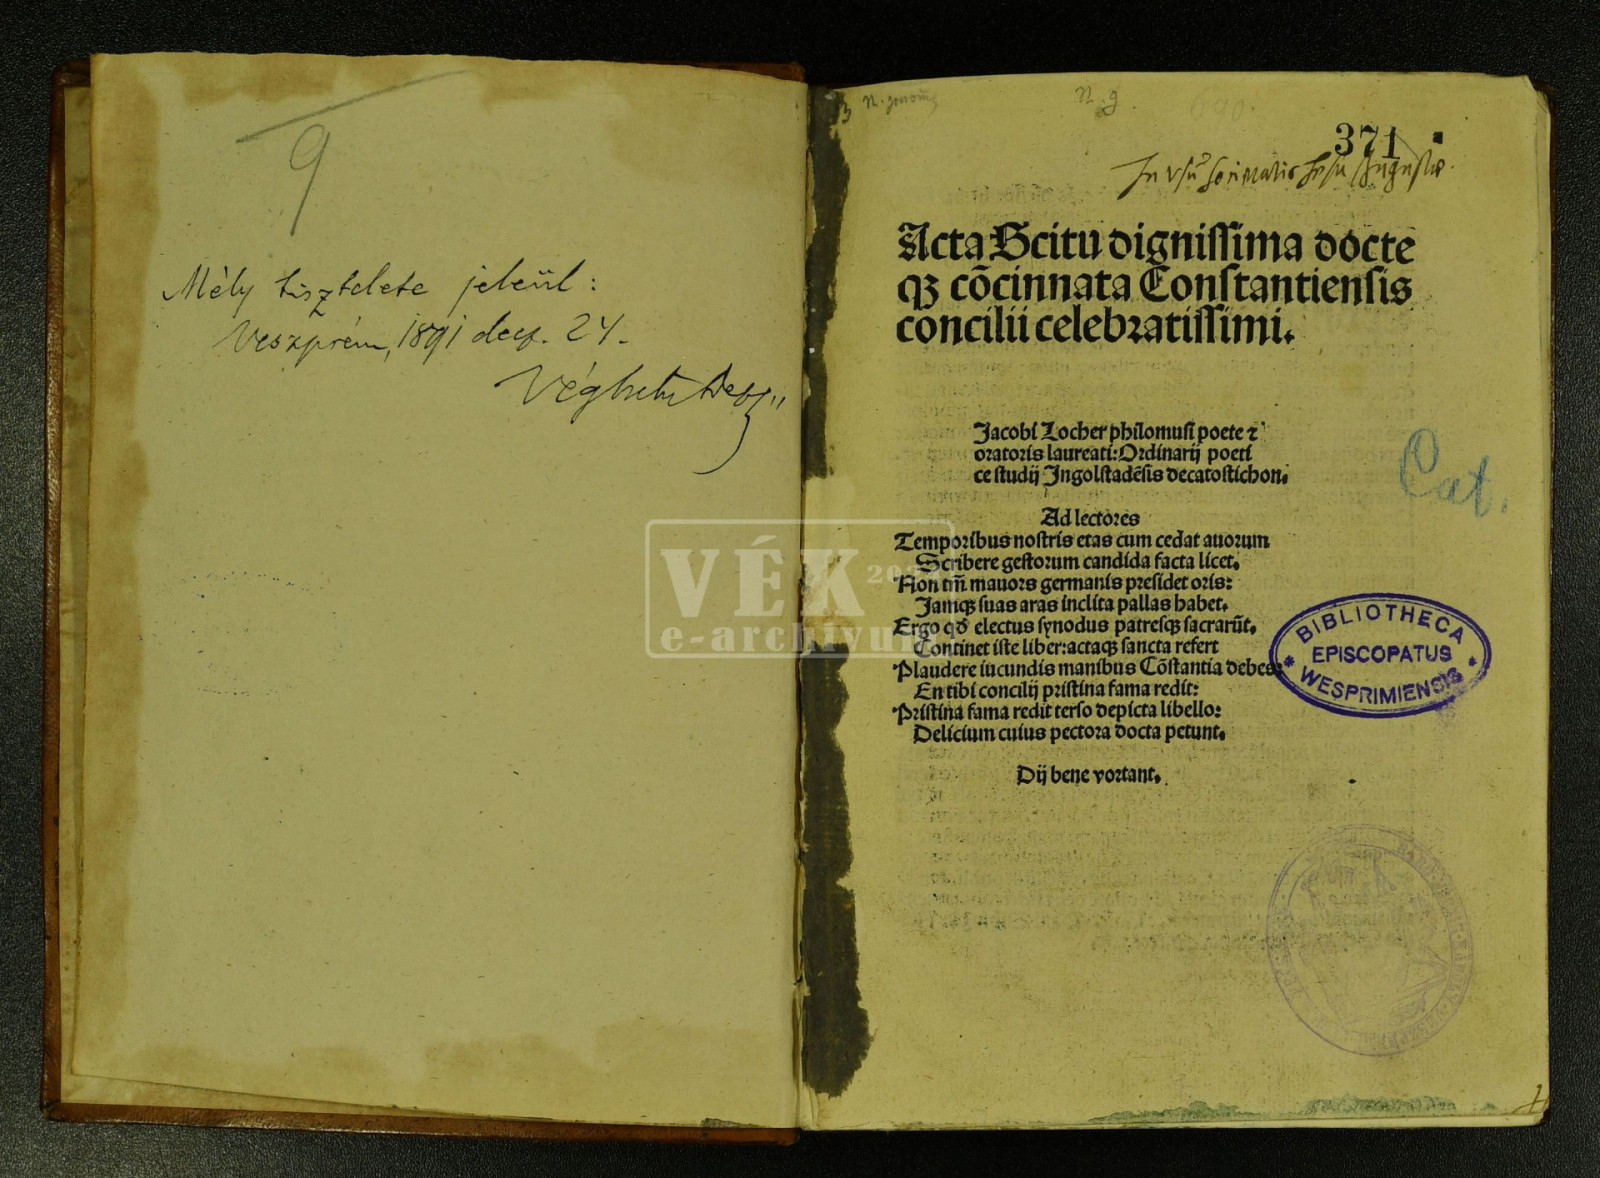 9
Mély tisztelete jeleül:
Veszprém, 1891 decz. 24.
Véghely Dezső
N. 9.
690.
371
In usū Societatis Jesu Augustae.
Acta Scitu dignissima docte
qꝫ cōcinnata Constantiensis
concilii celebratissimi.
Jacobi Locher philomusi poete ⁊
oratoris laureati: Ordinarij poeti
ce studij Ingolstadēsis decatostichon.
Cat.
Ad lectores
Temporibus nostris etas cum cedat auorum
Scribere gestorum candida facta licet.
Non tm̄ mauors germanis presidet oris:
Jamqꝫ suas aras inclita pallas habet.
Ergo qđ electus synodus patresqꝫ sacrarūt.
Continet iste liber: actaqꝫ sancta refert
Plaudere iucundis manibus Cōstantia debes:
En tibi concilij pristina fama redit:
Pristina fama redit terso depicta libello:
Delicium cuius pectora docta petunt.
Dij bene vortant.
BIBLIOTHECA
EPISCOPATUS
WESPRIMIENSIS
VÉK
e-archivum
1